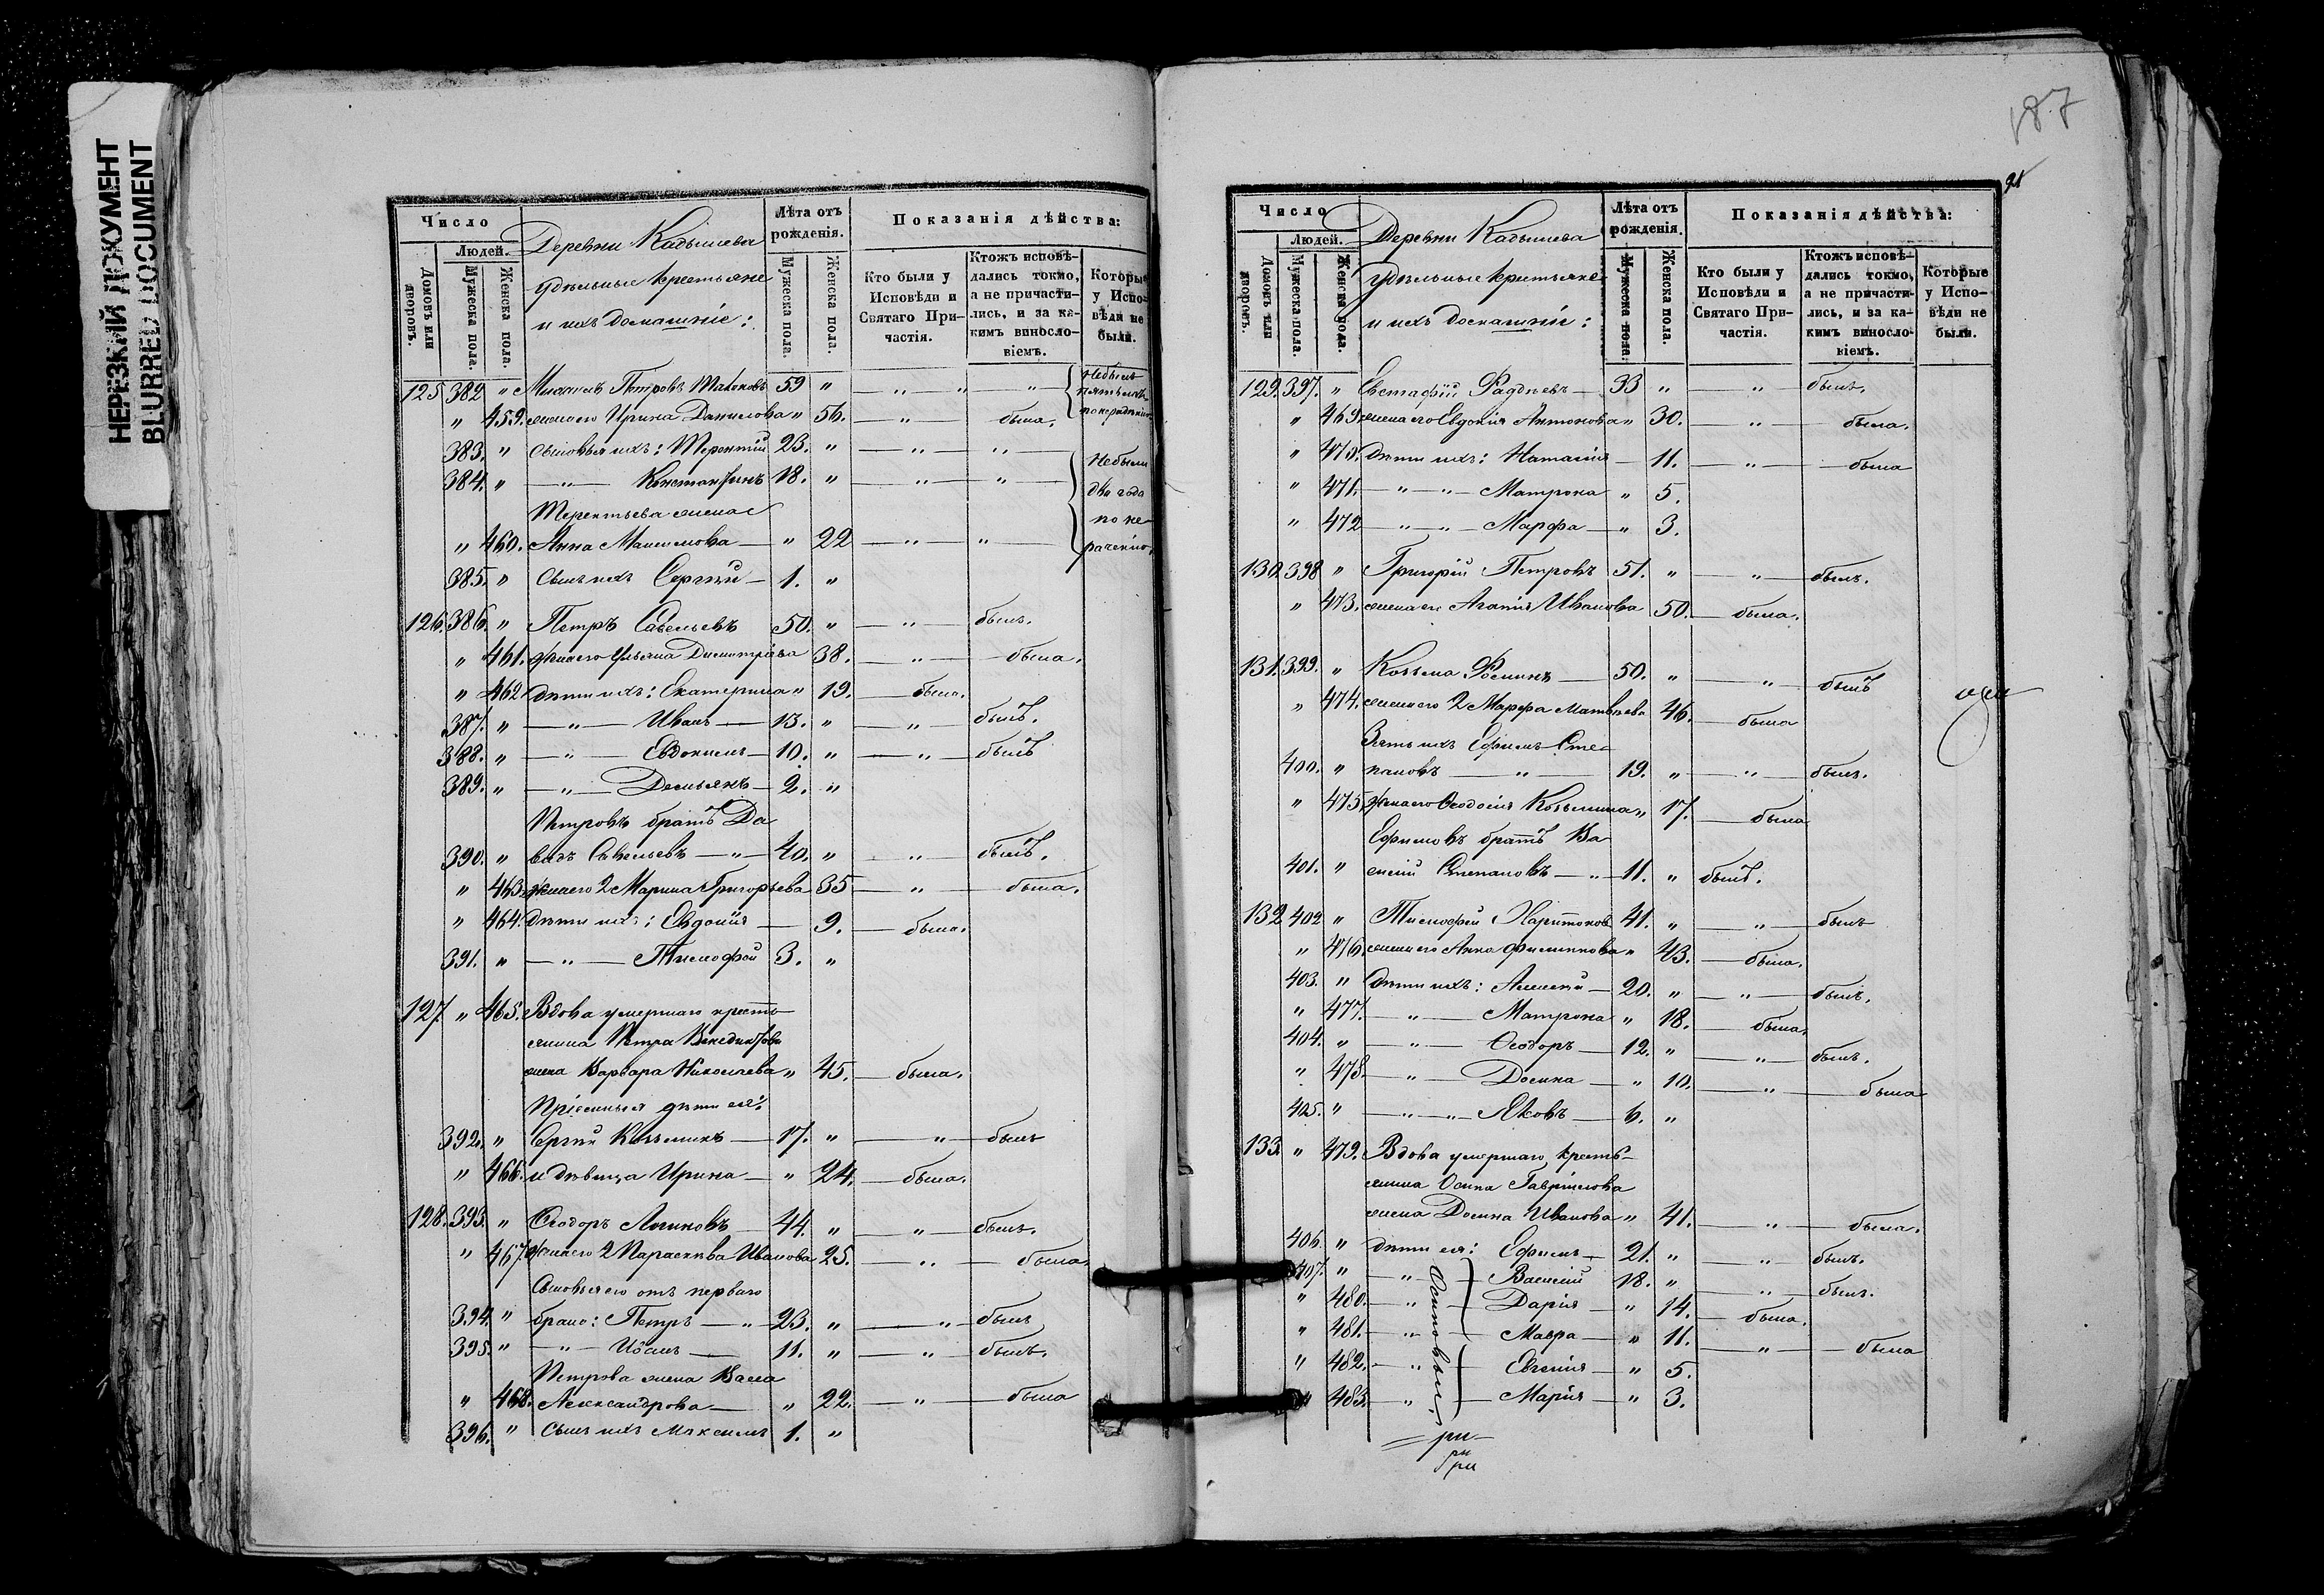 НЕРЕЗКИЙ ДОКУМЕНТ
BLURRED DOCUMENT
Число
Людей.
Домовъ или дворовъ.
Мужеска пола.
Женска пола.
Деревни Кадышева
удѣльные крестьяне
и ихъ домашніе:
Лѣта отъ рожденія.
Мужеска пола.
Женска пола.
Показанія дѣйства:
Кто были у Исповѣди и Святаго Причастія.
Ктожъ исповѣдались токмо, а не причастились, и за какимъ винословіемъ.
Которые у Исповѣди не были.
125 382 " Петровъ 59 " " " " не былъ
" 459. жена его Ирина Данилова " 56. " была.
383. " сыновья ихъ: Терентій 23. " " "
384. " " Константинъ 18. " " " не были два года по нерачению.
Терентьева жена
" 460. Анна Максимова " 22 " "
385. " сынъ ихъ Сергій 1. "
126. 386. " Петръ Савельевъ 50. " " былъ.
" 461. жена его Ульяна Димитріева 38. " была.
" 462 дѣти ихъ: Екатерина " 19. была.
387. " " Иванъ 13. " " былъ.
388. " " Евдокимъ 10. " " былъ
389. " " Демьянъ 2. "
Петровъ братъ Да
390. " видъ Савельевъ " 40. " " былъ.
" 463. жена его 2 Марина Григорьева 35 " была.
" 464. дѣти ихъ: Евдокія 9. была.
391. " " Тимофей 3. "
127. " 465. Вдова умершаго кресть
янина Петра Венедиктова
жена Варвара Николаева " 45. была.
Пріемныя дѣти ея:
392. " Сергій Козьминъ 17. " " былъ
" 466. и дѣвица Ирина " 24. была.
128. 393. " Ѳеодоръ Логиновъ 44. " " былъ.
" 467. жена его 2 Параскева Иванова 25. " была.
Сыновья его отъ перваго
394. " брака: Петръ " 23. " " былъ
395. " " Іоаннъ 11. " " былъ.
Петрова жена Васса
" 468. Александрова " 22. " была
396. " сынъ ихъ Максимъ 1. "
187
Число
Людей.
Домовъ или дворовъ.
Мужеска пола.
Женска пола.
Деревни Кадышева
удѣльные крестьяне
и ихъ домашніе:
Лѣта отъ рожденія.
Мужеска пола.
Женска пола.
Показанія дѣйства:
Кто были у Исповѣди и Святаго Причастія.
Ктожъ исповѣдались токмо, а не причастились, и за какимъ винословіемъ.
Которые у Исповѣди не были.
129. 397. " Евстафій Фадѣевъ 33 " " былъ.
" 469. жена его Евдокія Антонова " 30. " была.
" 470. дѣти ихъ: Наталія 11. " была
" 471. " " Матрона " 5.
" 472 " " Марфа " 3.
130. 398 " Григорій Петровъ 51. " " былъ.
" 473. жена его Агапія Иванова 50. была.
131. 399. " Козьма Ѳоминъ 50. " " былъ
" 474. жена его 2 Марфа Матвѣева 46. была
Зять ихъ Ефимъ Сте
400. " пановъ " 19. " " былъ.
" 475. жена его Ѳеодосія Козьмина " 17. была
Ефимовъ братъ Ва
401. " силій Степановъ " 11. " былъ.
132 402 " Тимофей Харитоновъ 41. " " былъ
" 476. жена его Анна Филиппова " 43. была.
403. " дѣти ихъ: Алексѣй 20. " " былъ.
" 477. " Матрона " 18. была.
404. " " Ѳеодоръ 12. " " былъ.
" 478. " Домна " 10. " была
405. " " " Яковъ 6. "
133. " 479. Вдова умершаго кресть
янина Осипа Гавріилова
жена Домна Иванова " 41. " была.
406. " дѣти ея: Ефимъ 21. " " былъ.
407. " " Василій 18. " " былъ.
" 480. " Дарія " 14. была.
" 481. " Мавра " 11. " была
" 482. " Евгенія " 5.
" 483. " Марія " 3.
Осиповы.